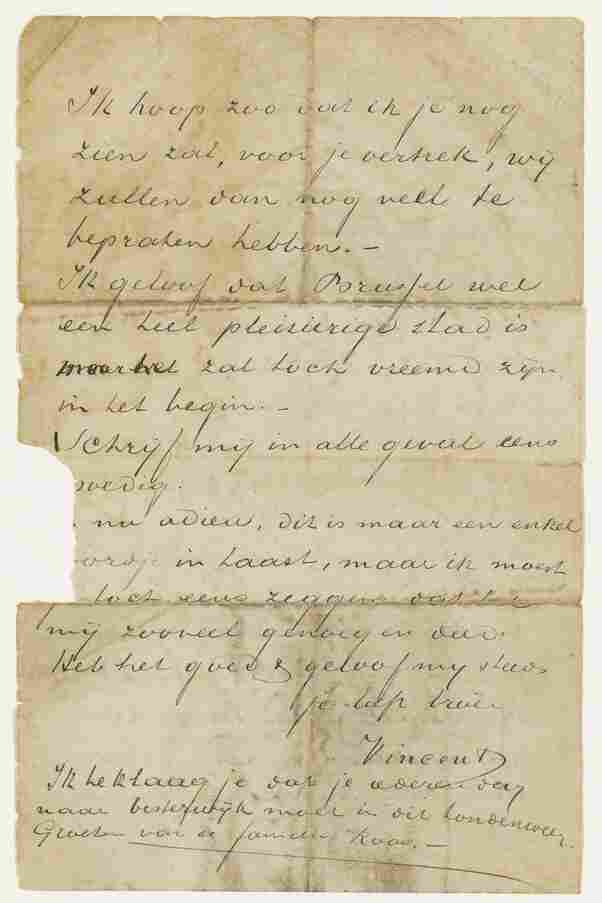 Ik hoop zoo dat ik je nog
zien zal, voor je vertrek, wij
zullen dan nog veel te
bepraten hebben. –
Ik geloof dat Brussel wel
een heel pleisierige stad is
maar het zal toch vreemd zijn
in het begin. –
Schrijf mij in alle geval eens
spoedig.
nu adieu, dit is maar een enkel
woordje in haast, maar ik moest
toch eens zeggen dat het
mij zooveel genoegen deed.
Heb het goed & geloof mij steeds
je liefh. broer
Vincent
Ik beklaag je dat je iederen dag
naar Oisterwijk moet in dit hondenweer.
Groeten van de familie Roos. –